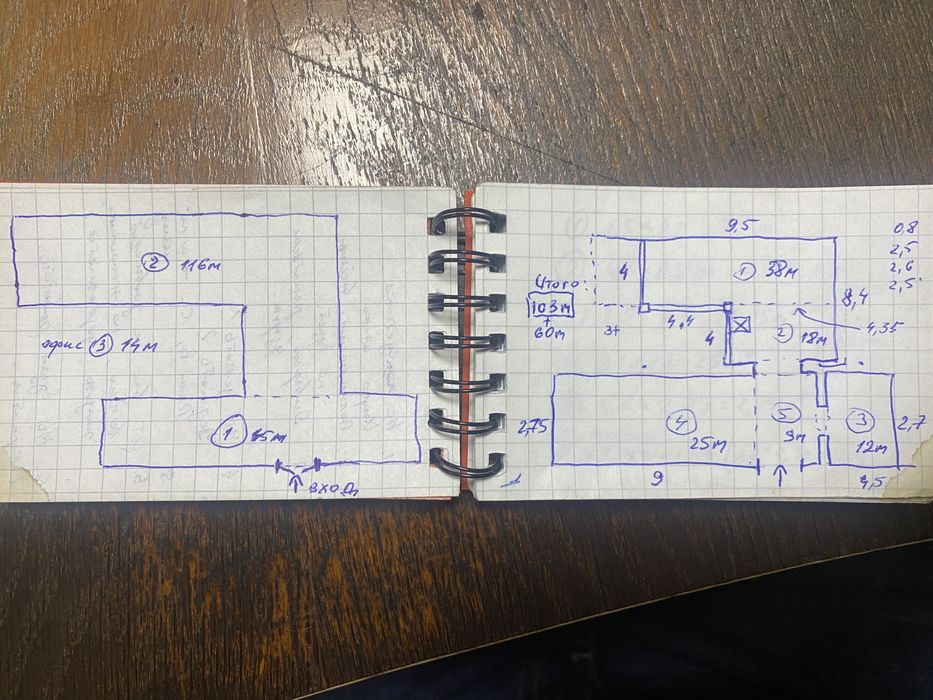 2 116м
офис 3 14м
1 45м
вход
9,5
0,8
2,5
2,6
2,5
4
1 38м
Итого:
103м
+
60м
3+
4,4
8,4
4,35
4
2 18м
2,75
4
25м
5
3м
3
12м
2,7
9
4,5